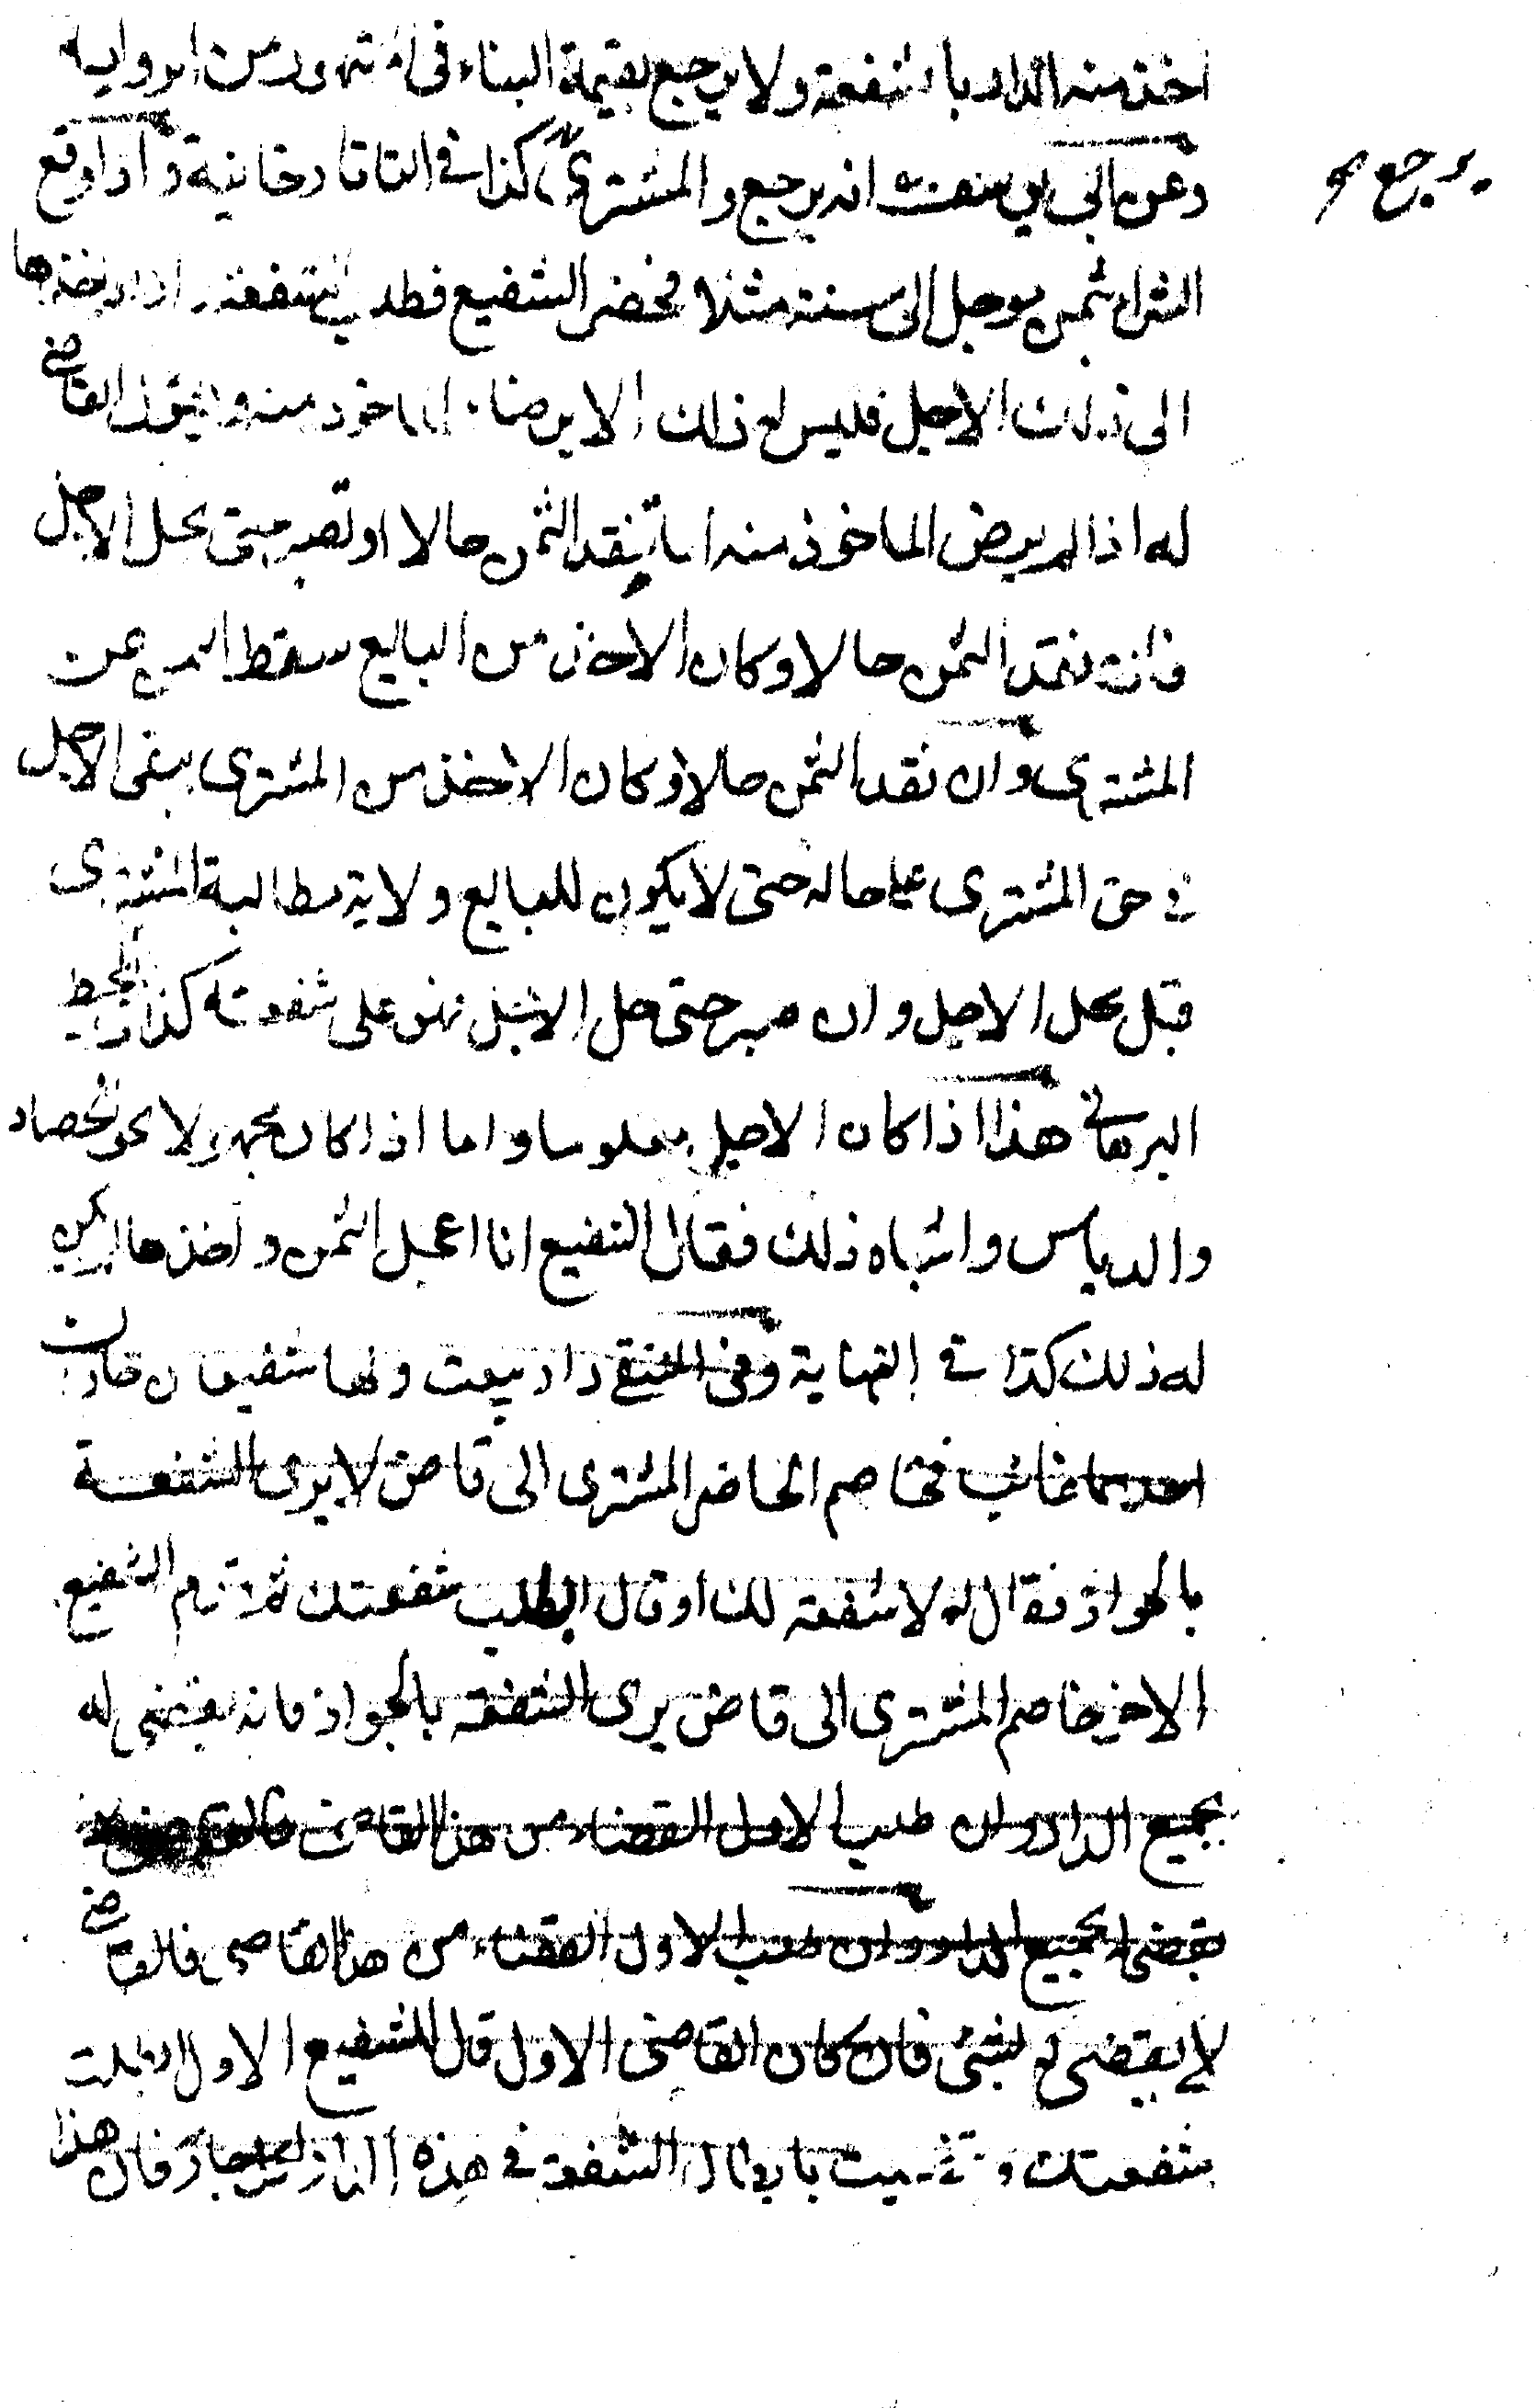 اخذ منه الدار بالشفعة ولا يرجع بقيمة البناء في المشهور من الرواية
وعن ابي يوسف انه يرجع والمشتري كذا في التاتارخانية واذا وقع
يرجع صح
الشراء بثمن موجل الى سنة مثلا فحضر الشفيع فطلب الشفعة واراد اخذها
الى ذلك الاجل فليس له ذلك الا برضاء الماخوذ منه و يقول القاضي
له اذا لم يرض الماخوذ منه اما ينقد الثمن حالا او تصبر حتى يحل الاجل
فان نقد الثمن حالا وكان الاخذ من البايع سقط الثمن عن
المشتري وان نقد الثمن حالا وكان الاخذ من المشترى يبقى الاجل
في حق المشترى على حاله حتى لا يكون للبايع ولاية مطالبة المشترى
قبل محل الاجل وان صبر حتى حل الاجل فهو على شفعته كذا في المحيط
البرهاني هذا اذا كان الاجل معلوما واما اذا كان مجهولا نحو الحصاد
والدياس واشباه ذلك فقال الشفيع انا اعجل الثمن و اخذها لم يكن
له ذلك كذا في النهاية وفي المنتقى دار بيعت ولها شفيعان
احدهما غائب فخاصم الحاضر المشترى الى قاض لا يرى الشفعة
بالجوار فقال له لا شفعة لك او قال ابطلت شفعتك ثم قدم الشفيع
الاخر فخاصم المشترى الى قاض يرى الشفعة بالجوار فانه يقضى له
بجميع الدار وان طلب الاول القضاء من هذا القاضي فالقاضي
يقضى بجميع الدار وان طلب الاول القضاء من هذا القاضي فالقاضي
لا يقضى له بشئ فان كان القاضى الاول قال للشفيع الاول ابطلت
شفعتك و قضيت بابطال الشفعة في هذه الدار للجار فان هذا